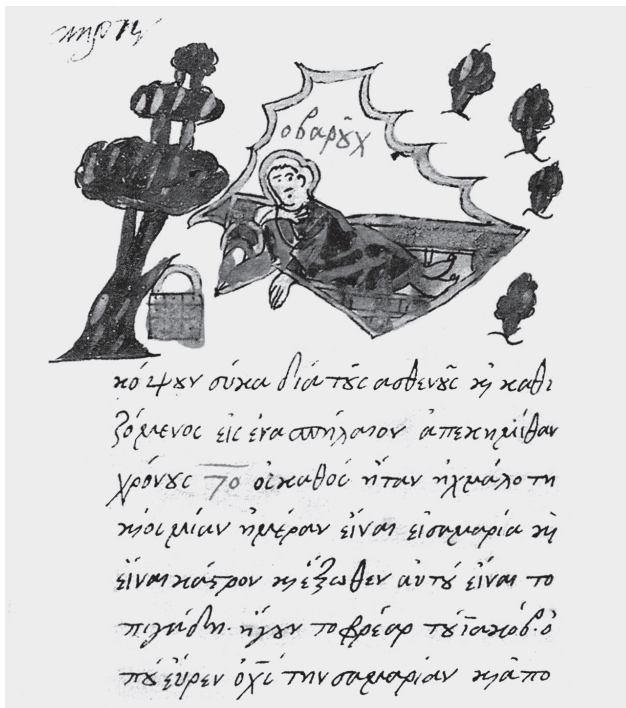 ὁ βαρȣ̀χ
κόψουν σύκα διὰ τοὺς ασθενοῦς κὴ καθι
ζόμενος εἰς ένα σπήλαιον ἀπεκημίθαν
χρόνους ο̅ οἱ καθὸς ἤταν ἠχμάλοτη
κὴ οι μίαν ἡμέραν εἶναι εἰσαμαρία κὴ
εἶναι κάστρον κὴ ἔξωθεν αὐτού εἶναι το
πιγάδη· ἤγουν το φρέαρ τού ϊακόβ· ὁ
πού εὗρεν ὁ χ̅ς̅ τὴν σαμαρίαν κὴ ἀπο